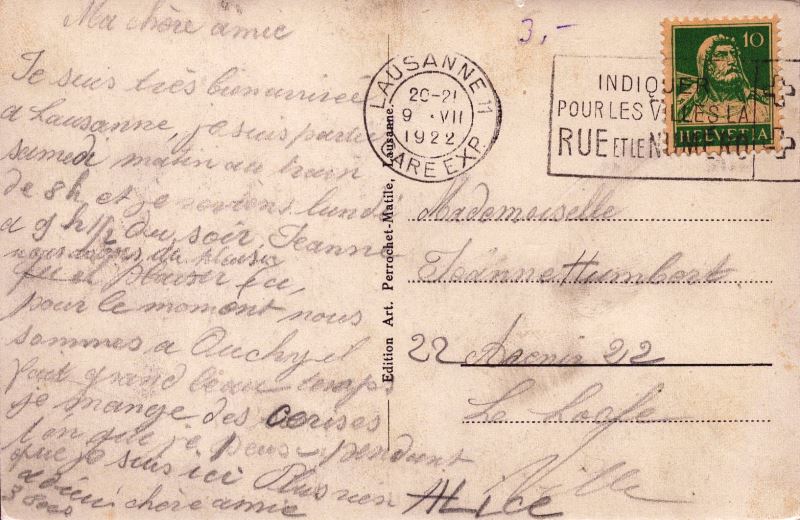 Ma chère amie
Je suis très bien arrivée
a Lausanne, je suis partie
samedi matin au train
de 8h et je reviens lundi
a 9 h 1/2 du soir, Jeanne
nous avons du plaisir
et plaisir ici,
pour le moment nous
sommes a Ouchy et
fait grand beau temps
je mange des cerises
que je peus pendant
que je suis ici Plus rien
chère amie
ALICE
3,-
LAUSANNE 11
20-21
9 . VII
1922
GARE EXP.
INDIQUER
POUR LES VILLES LA
RUE ET LE NUMERO
10
HELVETIA
Edition Art. Perrochet-Matile, Lausanne.
Mademoiselle
Jeanne Humbert
22 Avenir 22
Le Locle
Ville